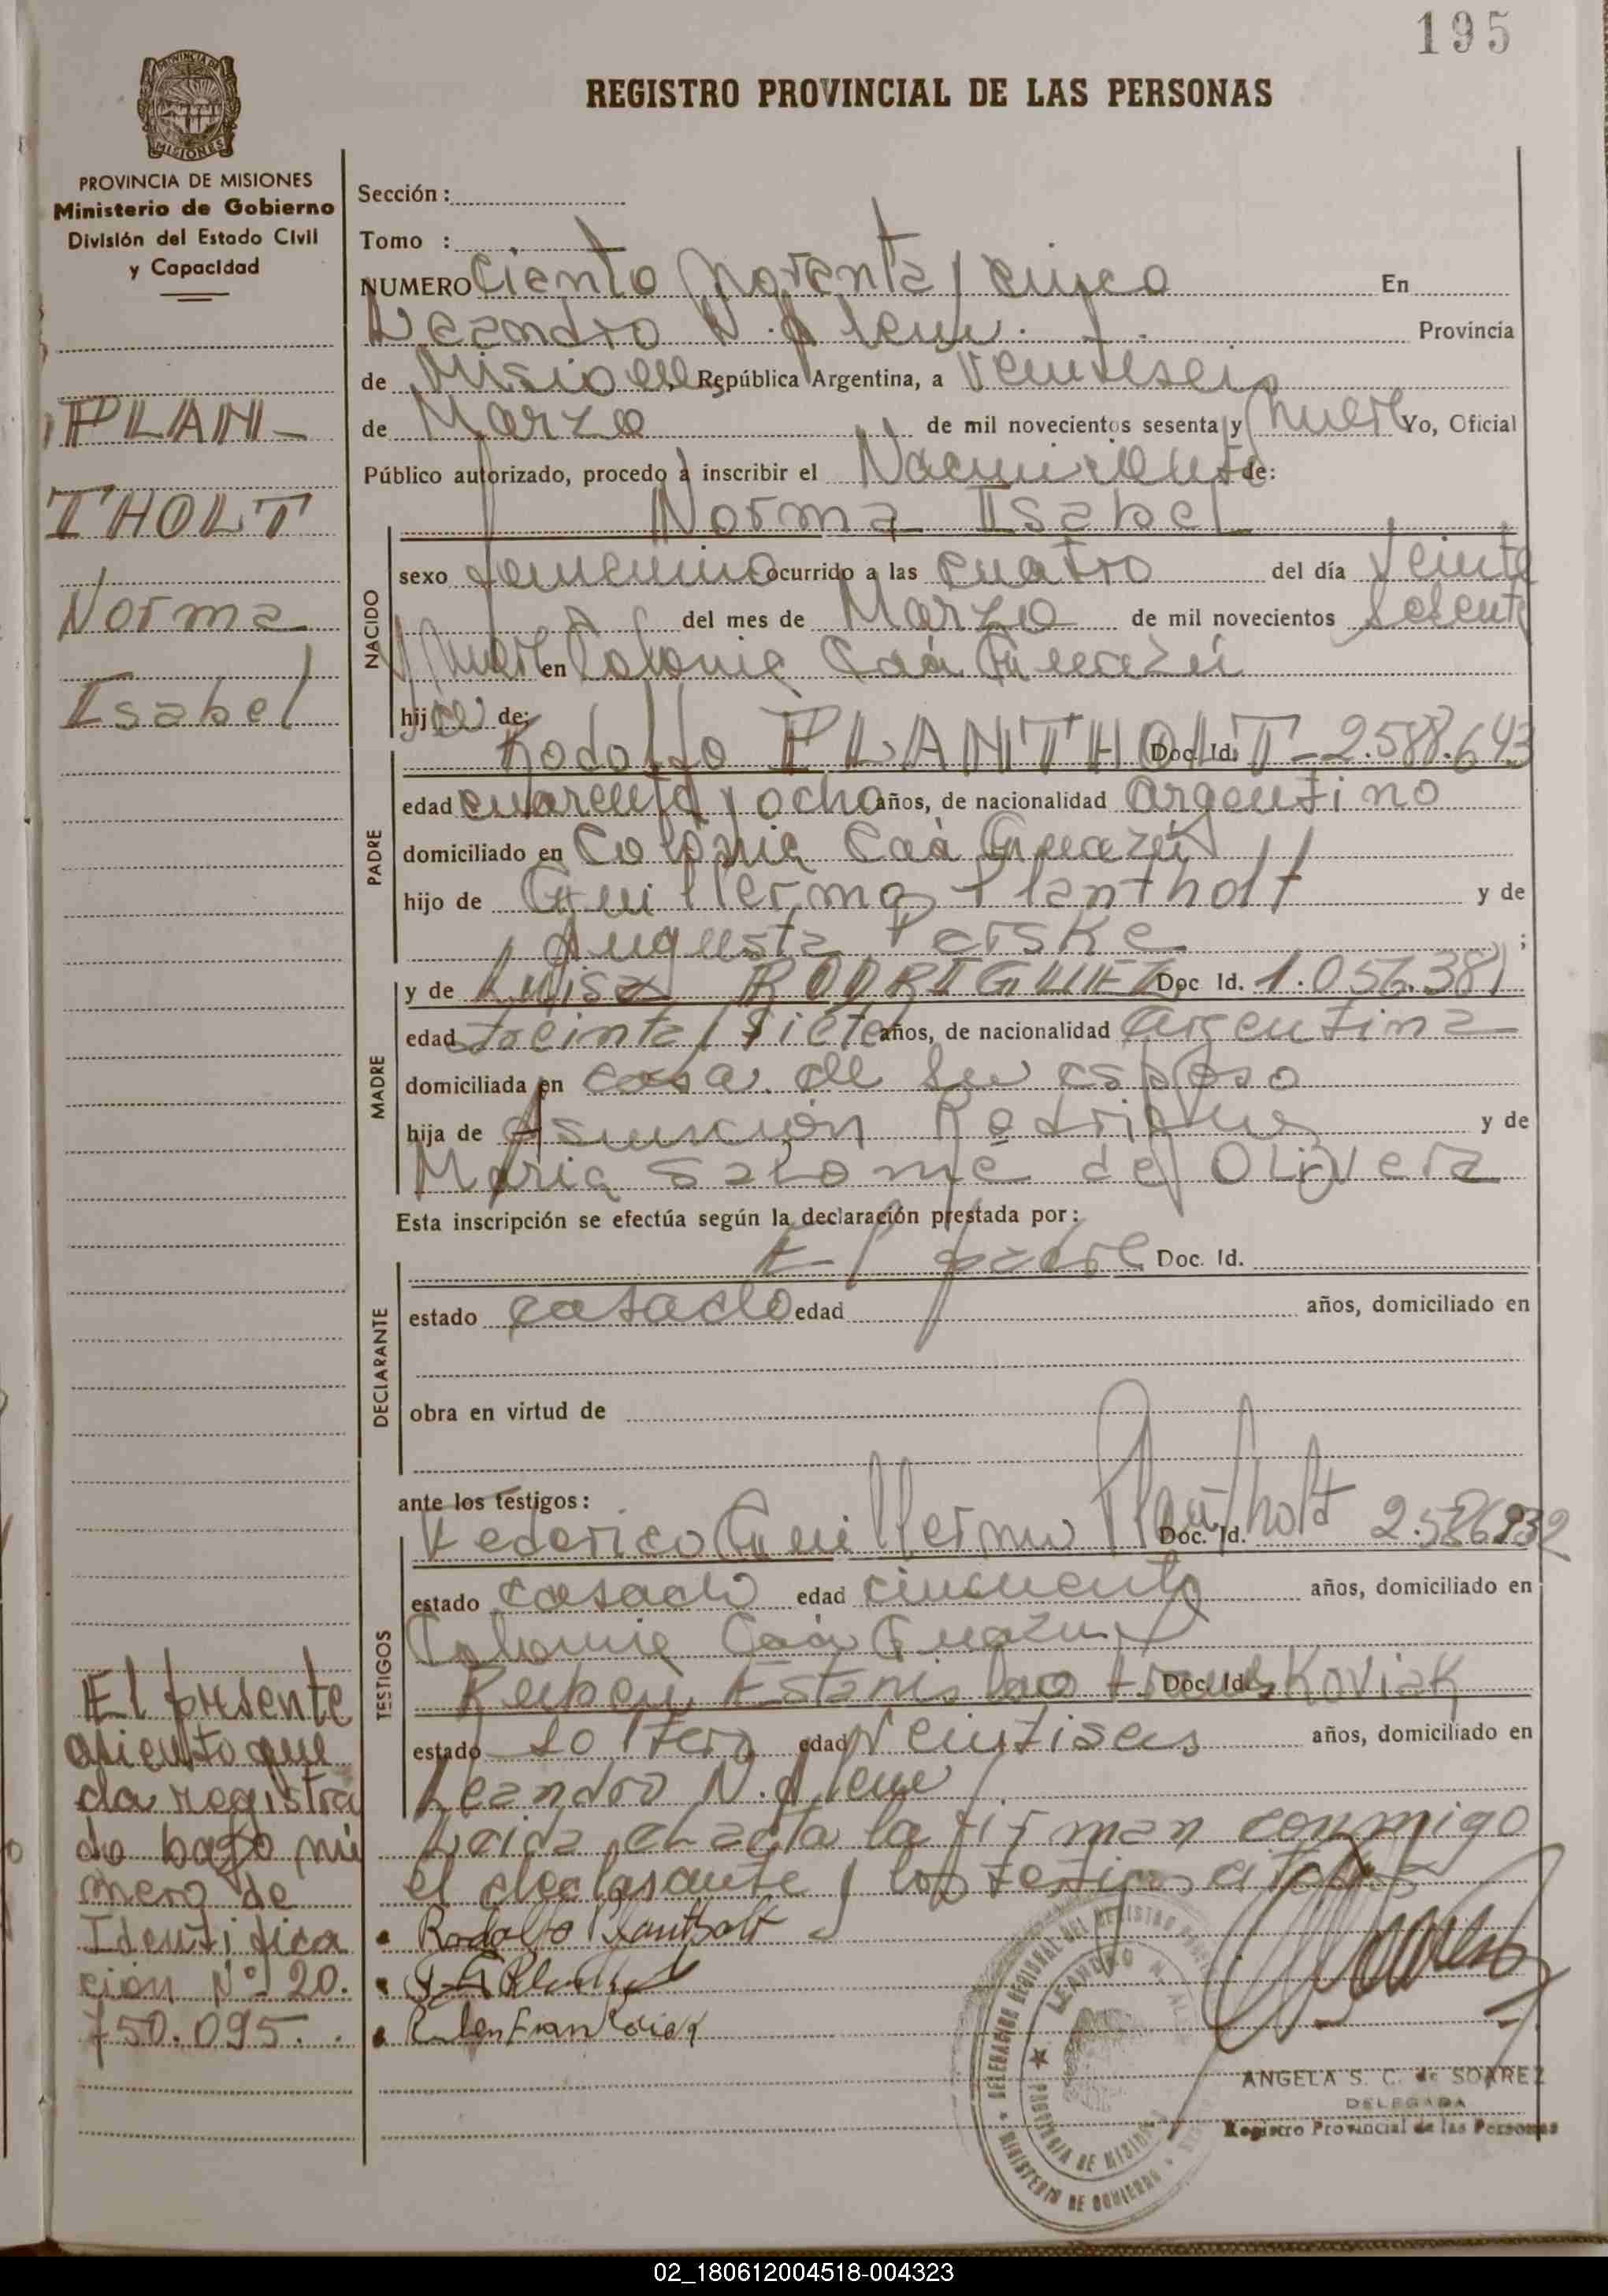 195
REGISTRO PROVINCIAL DE LAS PERSONAS
MISIONES
PROVINCIA DE MISIONES
Ministerio de Gobierno
División del Estado Civil
y Capacidad
PLAN-
THOLT
Norma
Isabel
El presente
asiento que
da registra
do bajo nú
mero de
Identifica
ción Nº 20.
750.095..
Sección:
Tomo :
NUMERO Ciento Noventa y cinco En
Leandro N. Alem. Provincia
de Misiones, República Argentina, a veintiseis
de Marzo de mil novecientos sesenta y nueve Yo, Oficial
Público autorizado, procedo a inscribir el Nacimiento de:
Norma Isabel
NACIDO
sexo femenino ocurrido a las cuatro del día veinte
del mes de Marzo de mil novecientos sesenta
y nueve en Colonia Caá Guazú
hija de:
PADRE
Rodolfo PLANTHOLT Doc. Id. 2.588.643
edad cuarenta y ocho años, de nacionalidad argentino
domiciliado en Colonia Caá Guazú
hijo de Guillermo Plantholt y de
Augusta Perske ;
MADRE
y de Luisa RODRIGUEZ Doc Id. 1.056.381
edad treinta y siete años, de nacionalidad argentina
domiciliada en casa de su esposo
hija de Asunción Rodrigues y de
Maria Salome de Olivera
Esta inscripción se efectúa según la declaración prestada por:
DECLARANTE
El padre Doc. Id.
estado casado edad años, domiciliado en
obra en virtud de
ante los testigos:
TESTIGOS
Federico Guillermo Plantholt Doc. Id.
estado casado edad cincuenta años, domiciliado en
Colonia Caá Guazú
Ruben Estanislao Doc. Id.
estado soltero edad veintiseis años, domiciliado en
Leandro N. Alem
Leida el acta la firman conmigo
el declarante y los testigos citados
Rodolfo Plantholt
DELEGACION REGIONAL DEL REGISTRO
LEANDRO N. AL
PROVINCIA DE MISIONES
MINISTERIO DE GOBIERNO
ANGELA S. C. de SOAREZ
DELEGADA
Registro Provincial de las Personas
02_180612004518-004323